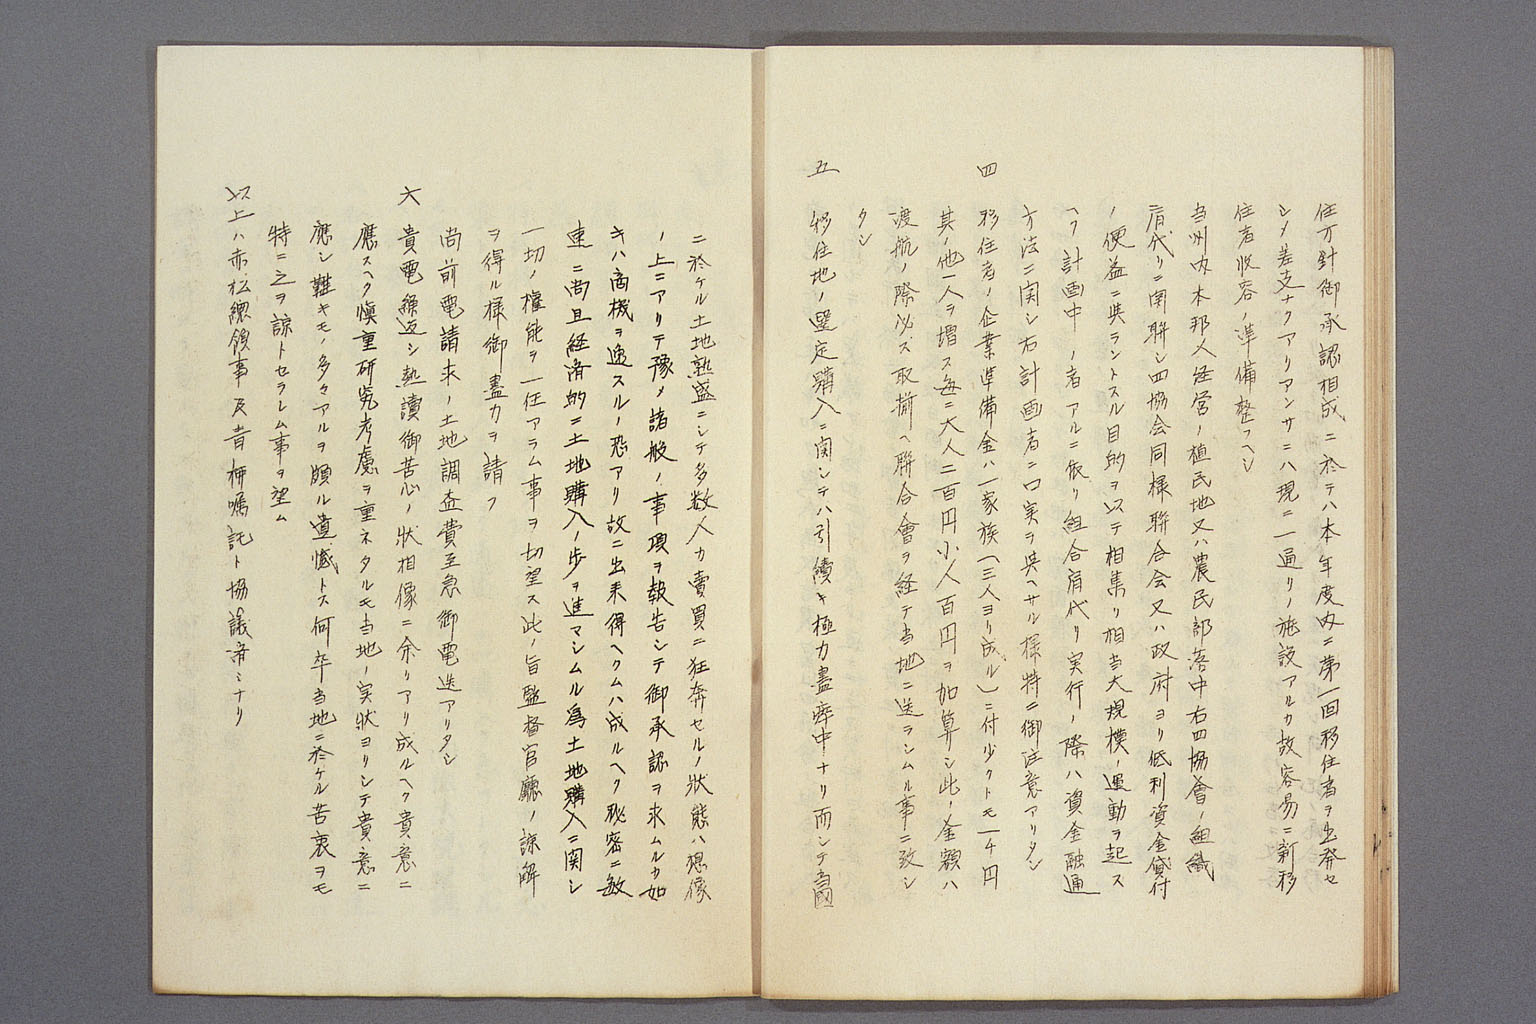 住方針御承認相成ニ於テハ本年度内ニ第一回移住者ヲ出発セ
シメ差支ナクアリアンサニハ現ニ一通リノ施設アルカ故容易ニ新移
住者收容ノ準備整フヘシ
当州内本邦人経営ノ植民地又ハ農民部落中右四協會ノ組織
ニ関聯シ四協会同様聯合会又ハ政府ヨリ低利資金貸付
ノ便益ニ與ラントスル目的ヲ以テ相集リ相当大規模ノ運動ヲ起ス
ヘク計画中ノ者アルニ依リ組合肩代リ実行ノ際ハ資金融通
方法ニ関シ右計画者ニ口実ヲ與ヘサル様特ニ御注意アリタシ
四 移住者ノ企業準備金ハ一家族(三人ヨリ成ル)ニ付少クトモ一千円
其ノ他一人ヲ増ス毎ニ大人二百円小人百円ヲ加算シ此ノ金額ハ
渡航ノ際必ズ取揃ヘ聯合會ヲ経テ当地ニ送ラシムル事ニ致シ
タシ
五 移住地ノ選定購入ニ関シテハ引續キ極力盡瘁中ナリ而シテ當國
ニ於ケル土地熱盛ニシテ多数人カ賣買ニ狂奔セルノ状態ハ想像
ノ上ニアリテ豫メ諸般ノ事項ヲ報告シテ御承認ヲ求ムルカ如
キハ商機ヲ逸スルノ恐アリ故ニ出来得ヘクムハ成ルヘク秘密ニ敏
速ニ尚且経済的ニ土地購入ノ歩ヲ進マシムル為土地購入ニ関シ
一切ノ權能ヲ一任アラム事ヲ切望ス此ノ旨監督官廳ノ諒解
ヲ得ル様御盡力ヲ請フ
尚前電請求ノ土地調査費至急御電送アリタシ
六 貴電繰返シ熱讀御苦心ノ状相像ニ余リアリ成ルヘク貴意ニ
應スヘク愼重研究考慮ヲ重ネタルモ当地ノ実状ヨリシテ貴意ニ
應シ難キモノ多々アルヲ頗ル遺憾トス何卒当地ニ於ケル苦衷ヲモ
特ニ之ヲ諒トセラレム事ヲ望ム
以上ハ赤松總領事及青柳嘱託ト協議済ミナリ